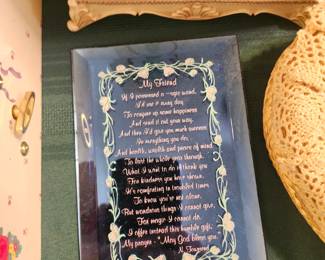 My Friend
If I possessed a magic wand,
I'd use it every day,
To conjure up some happiness
And send it out your way.
And then I'd give you much success
In everything you do,
And health, wealth and peace of mind
To last the whole year through.
What I want to do is thank you
For kindness you have shown,
It's comforting in troubled times
To know you're not alone.
But wondrous things I cannot give,
For magic I cannot do,
I offer instead this humble gift,
My prayer - "May God bless you."